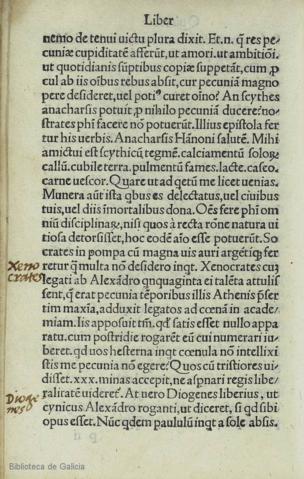 Liber
nemo de tenui uictu plura dixit. Et.n. q̃ res pe-
cuniæ cupiditatẽ afferũt, ut amori. ut ambitiõi.
ut quotidianis sũptibus copiæ suppetãt, cum ꝓ
cul ab iis oĩbus rebus absit, cur pecuniã magno
pere desideret, uel potiꝰ curet oĩno? An scythes
anacharsis potuit, ꝓ nihilo pecuniã ducere: no-
strates phi facere nõ potuerũt. Illius epistola fer
tur his uerbis. Anacharsis Hãnoni salutẽ. Mihi
amictui est scythicũ tegmẽ. calciamentũ soloꝝ
callũ. cubile terra. pulmentũ fames. lacte. caseo.
carne uescor. Quare ut ad qetũ me licet uenias.
Munera aũt ista qbus es delectatus, uel ciuibus
tuis, uel diis ĩmortalibus dona. Oẽs fere phi om
niũ disciplinaꝝ, nisi quos à recta rõne natura ui
tiosa detorsisset, hoc eodẽ aĩo esse potuerũt. So
crates in pompa cũ magna uis auri argẽtiq; fer
retur q̃ multa nõ desidero inqt. Xenocrates cũ
legati ab Alexãdro qnquaginta ei talẽta attulis
sent, q̃ erat pecunia tẽporibus illis Athenis p̃ser
tim maxĩa, adduxit legatos ad cœnã in acade-
miam. Iis apposuit tm̃. qd̃ satis esset nullo appa
ratu. cum postridie rogarẽt eũ cui numerari iu-
beret. qd uos hesterna inqt cœnula nõ intellexi
stis me pecunia nõ egere? Quos cũ tristiores ui-
disset. xxx. minas accepit, ne aspnari regis libe/
ralitatẽ uideret. At uero Diogenes liberius, ut
cynicus Alexãdro roganti, ut diceret, si qd sibi
opus esset. Nũc qdem paululũ inqt a sole absis.
Xeno
crates
Dioge
nes
Biblioteca de Galicia